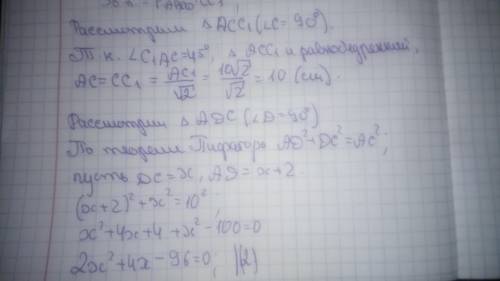 Рассмотрим △ ACC₁ (∠C = 90°).
Т. к. ∠C₁AC=45°, △ ACC₁ и равнобедренный,
AC=CC₁ = AC₁/√2 = 10√2/√2 = 10 (см).
Рассмотрим △ ADC (∠D=90°)
По теореме Пифагора AD²+DC²=AC²;
пусть DC = x, AD = x+2.
(x+2)²+x²=10²;
x²+4x+4+x²-100=0
2x²+4x-96=0; |(2)